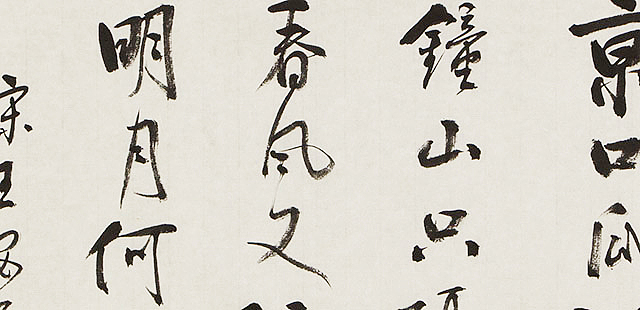 京口瓜
鐘山只
春風又
明月何
宋王安